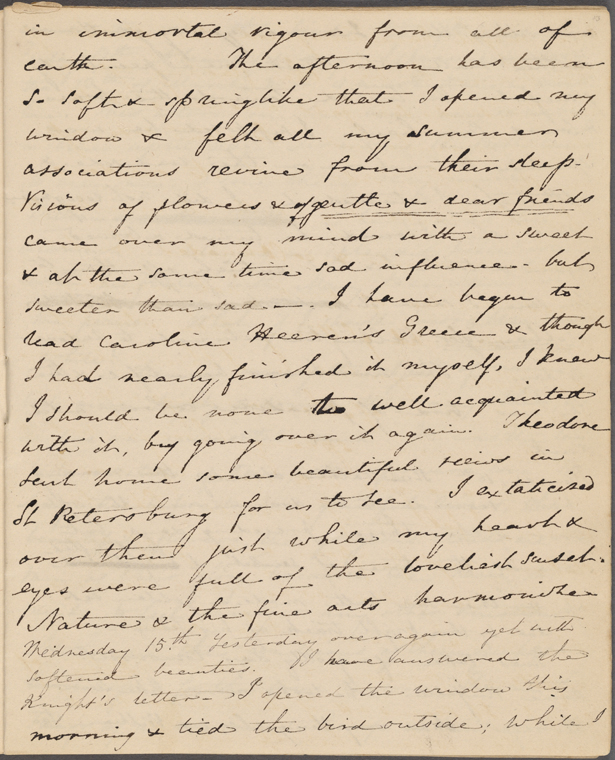 in immortal vigour from all of
earth. The afternoon has been
so soft & springlike that I opened my
window & felt all my summer
associations revive from their sleep.
Visions of flowers & of gentle & dear friends
came over my mind with a sweet
& at the same time sad influence - but
sweeter than sad. — . I have begun to
read Caroline Heeren's Greece & though
I had nearly finished it myself, I knew
I should be none to well acquainted
with it, by going over it again. Theodore
sent home some beautiful views in
St Petersburg for us to see. I extaticised
over them just while my heart &
eyes were full of the loveliest sunset.
Nature & the fine arts harmonise
Wednesday 15th Yesterday over again yet with
softened beauties. I have answered the
Knight's letter - I opened the window this
morning & tied the bird outside; while I